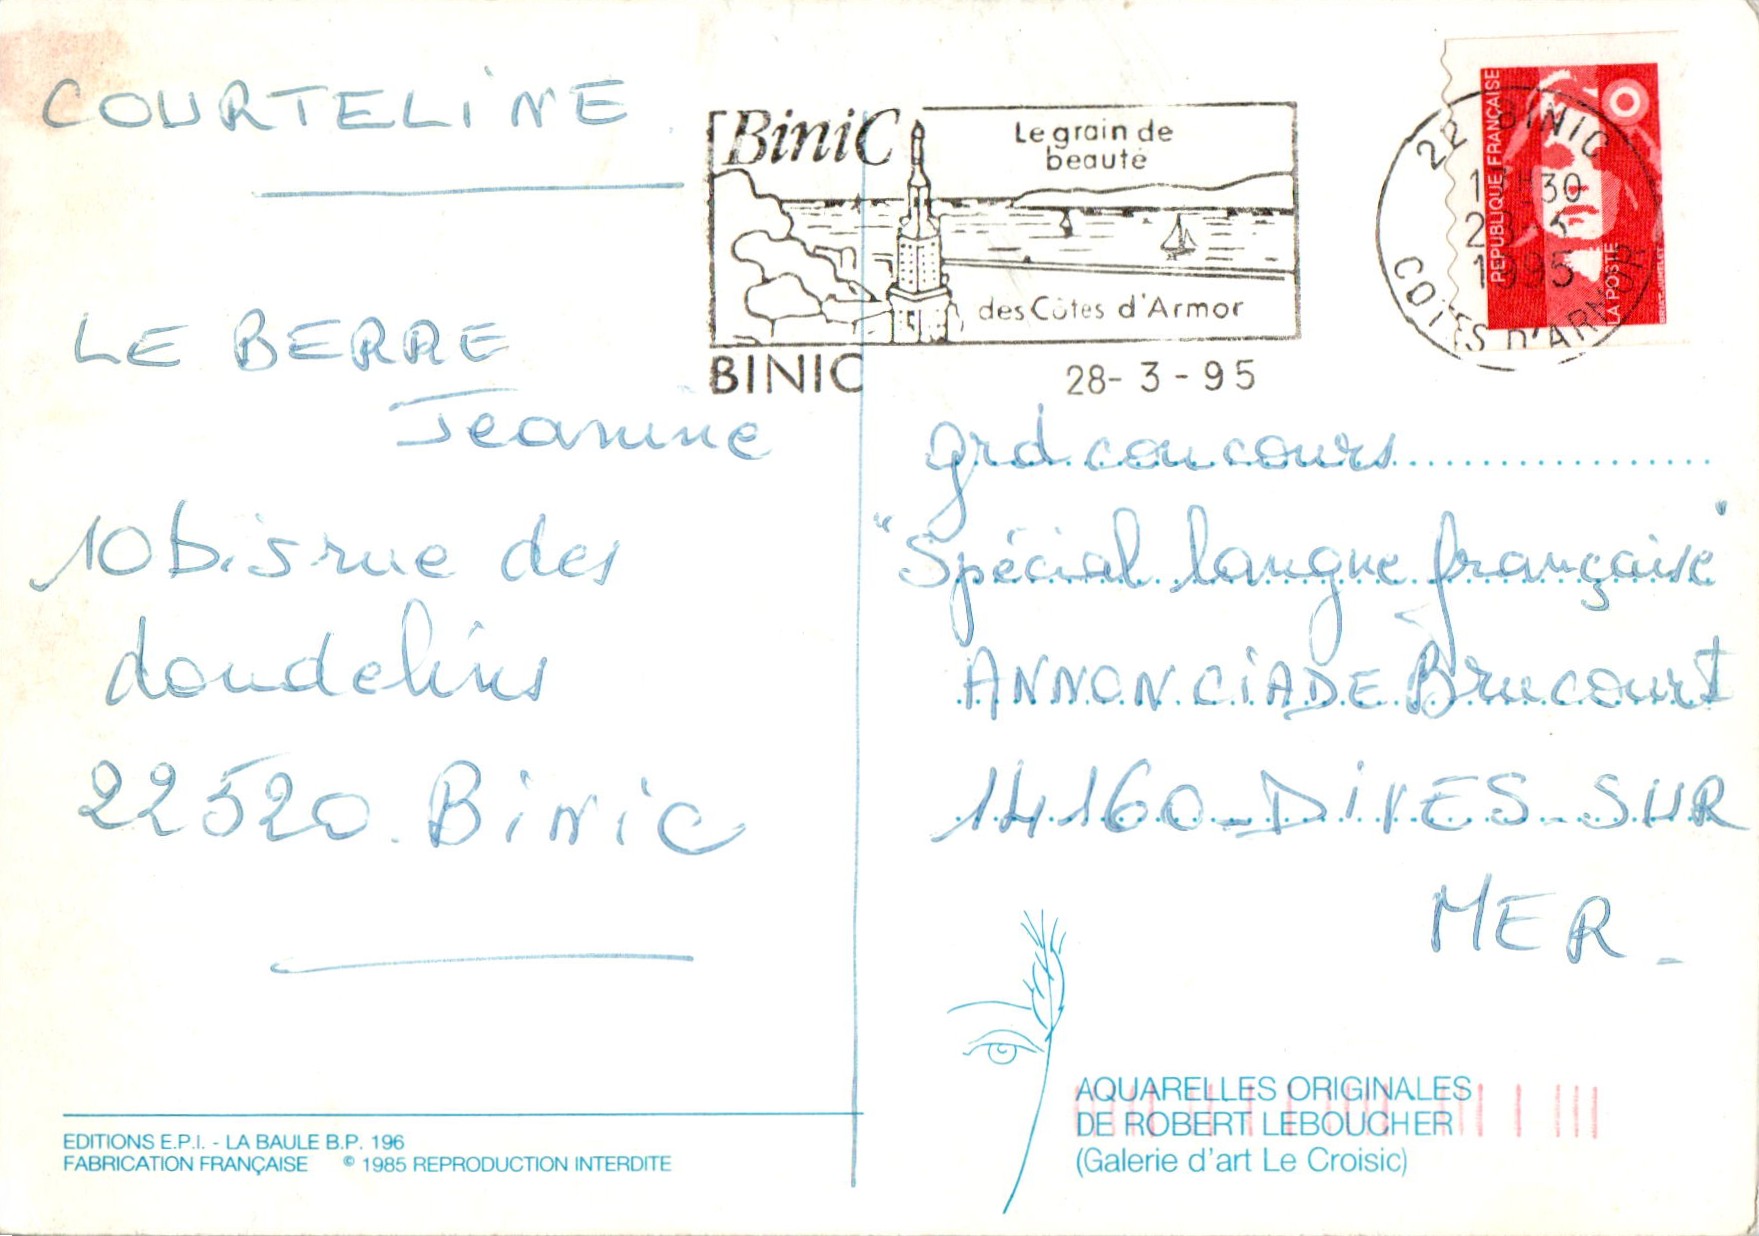 COURTELINE
LE BERRE
Jeannine
10 bis rue des
doudelins
22520. BINIC
BiniC
Le grain de
beauté
des Côtes d'Armor
BINIC
28- 3 - 95
22 BINIC
30
1995
COTES D'ARMOR
REPUBLIQUE FRANÇAISE
LA POSTE
grd concours
"Spécial langue française"
ANNONCIADE Brucourt
14160 - DIVES - SUR
MER -
EDITIONS E.P.I. - LA BAULE B.P. 196
FABRICATION FRANÇAISE © 1985 REPRODUCTION INTERDITE
AQUARELLES ORIGINALES
DE ROBERT LEBOUCHER
(Galerie d'art Le Croisic)